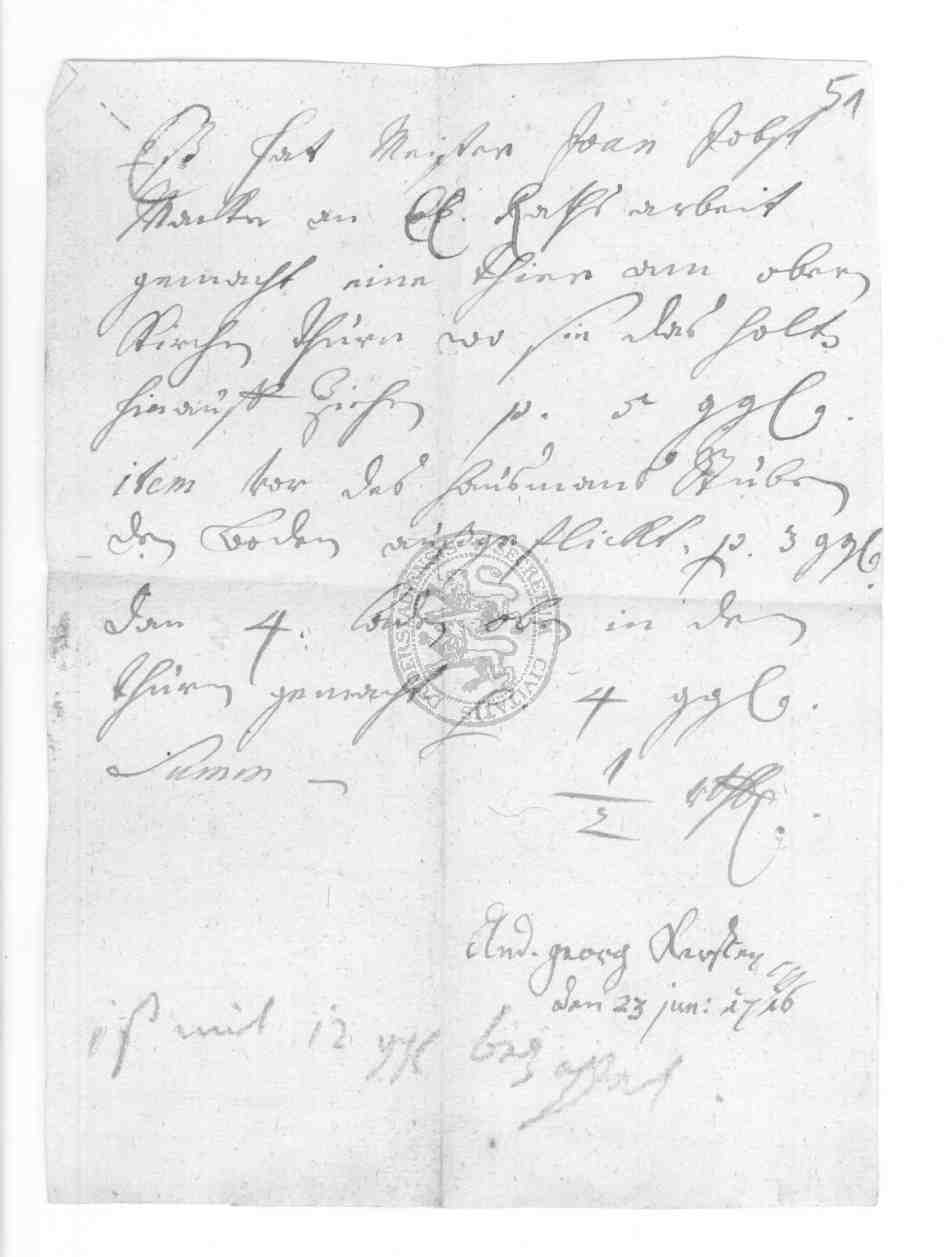 51
Eß hat Meister Joan Jobst
an EE. Rahts arbeit
gemacht eine thier am oben
Kirchen thurn wo sie das holtz
hinauff ziehen p. 5 ggl.
item vor des hausmans Stuben
den Boden außgeflickt, p. 3 ggl.
dan 4. oben in den
thurn gemacht p. 4 ggl.
Summ — 1/2 rthl.
And. georg Kersten
den 23 jun: 1716
ist mit 12 ggl bezahlt.